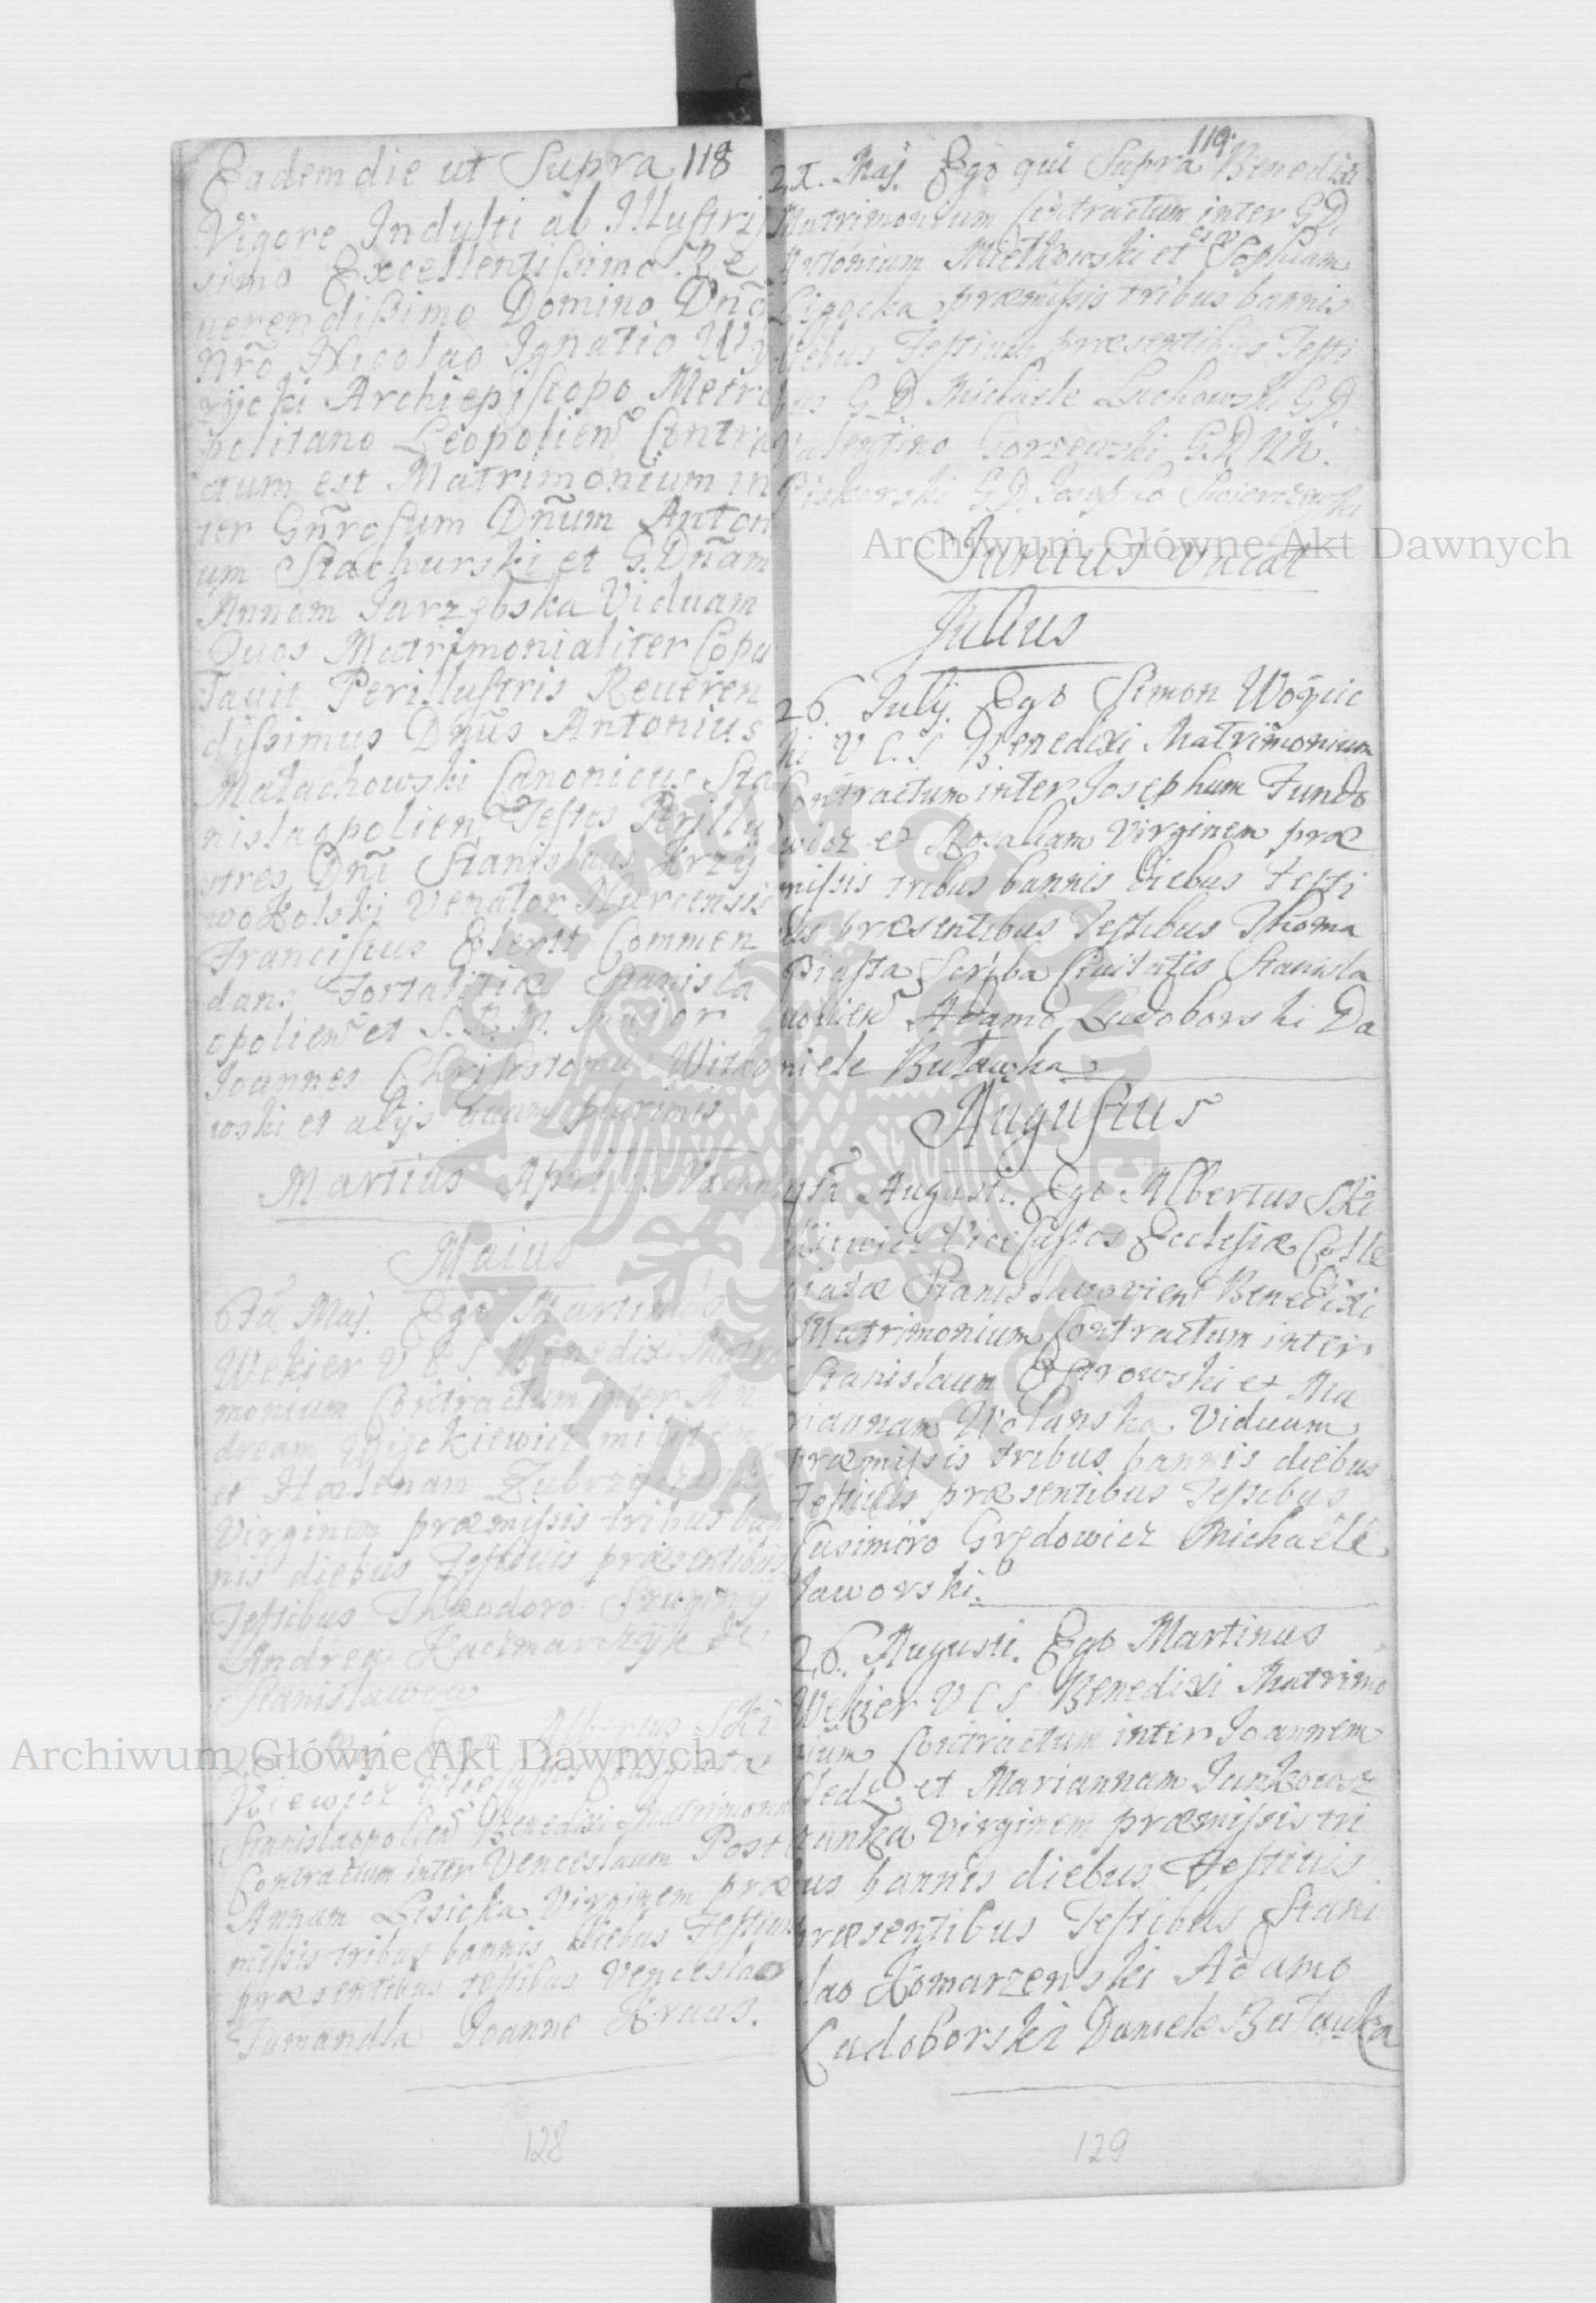 118
Eadem die ut Supra
Vigore Indulti ab Illustris
simo Excellentissimo Re
uerendissimo Domino Dnõ
Nrõ Nicolao Ignatio Wy
zycki Archiepiscopo Metro
politano Leopolien Contra
ctum est Matrimonium in
ter Gnrosum Dñum Anton
ium Stachurski et G. Dñam
Annam Jarzębska Viduam
Quos Matrimonialiter Copu
lauit Perillustris Reueren
dissimus Dñus Antonius
Małachowski Canonicus Sta
nislaopolien Testes Perillu
stres Dñi Stanislaus Krzy
wokolski Venator Nurcensis
Franciscus Commen
dans Fortalitiæ Stanisla
opolien et S. R. M. Maior
Joannes Chrisostomus Witko
wski et alijs quam plurimis
Martius Aprilis
Maius
6ta Maj. Ego Martinus
Wekier V C S Benedixi Matri
monium Contractum inter An
dream militem
et Helenam
Virginem præmissis tribus ban
nis diebus Festiuis præsentibus
Testibus Theodoro Szumny
Andrea Kaczmarczyk de
Stanislawow
Maj Ego Albertus Ski
Kiewicz ViceCustos
Stanislaopolien Benedixi Matrimoni
Contractum inter Venceslaum Post
Annam Lisicka Virginem præ
missis tribus bannis diebus Festiuis
præsentibus testibus Venceslao
Tumandla Joanne Kraus.
128
119
Maj. Ego qui Supra Benedixi
Matrimonium Contractum inter G D
Antonium Mietkowski et Sophiam
Ligocka præmissis tribus bannis
diebus Festiuis præsentibus Testi
bus G D Michaele Luchowski G D
Valentino Gorzewski G D
Piskorski G D Josepho
Junius Vacat
Julius
26. Julij. Ego Simon Woycic
ki V C S Benedixi Matrimonium
Contractum inter Josephum Fundo
wicz et Rosaliam Virginem præ
missis tribus bannis diebus Festi
uis præsentibus Testibus Thoma
Piasta Scriba Ciuitatis Stanisla
uolien Adamo Ludoborski Da
niele Butawka
Augustus
Augusti. Ego Albertus Ski
ViceCustos Ecclesiæ Colle
giatæ Stanislavovien Benedixi
Matrimonium Contractum inter
Stanislaum Ostrowski et Ma
riannam Wolanska Viduam
præmissis tribus bannis diebus
Festiuis præsentibus Testibus
Casimiro Grędowicz Michaële
Jaworski.
26. Augusti. Ego Martinus
Wekier V C S Benedixi Matrimo
nium Contractum inter Joannem
et Mariannam
Virginem præmissis tri
bus bannis diebus Festiuis
præsentibus Testibus Stani
lao Komarzenski Adamo
Ludoborski Daniele Butawka
129
Archiwum Główne Akt Dawnych
Archiwum Główne Akt Dawnych
ARCHIWUM GŁÓWNE
AKT DAWNYCH